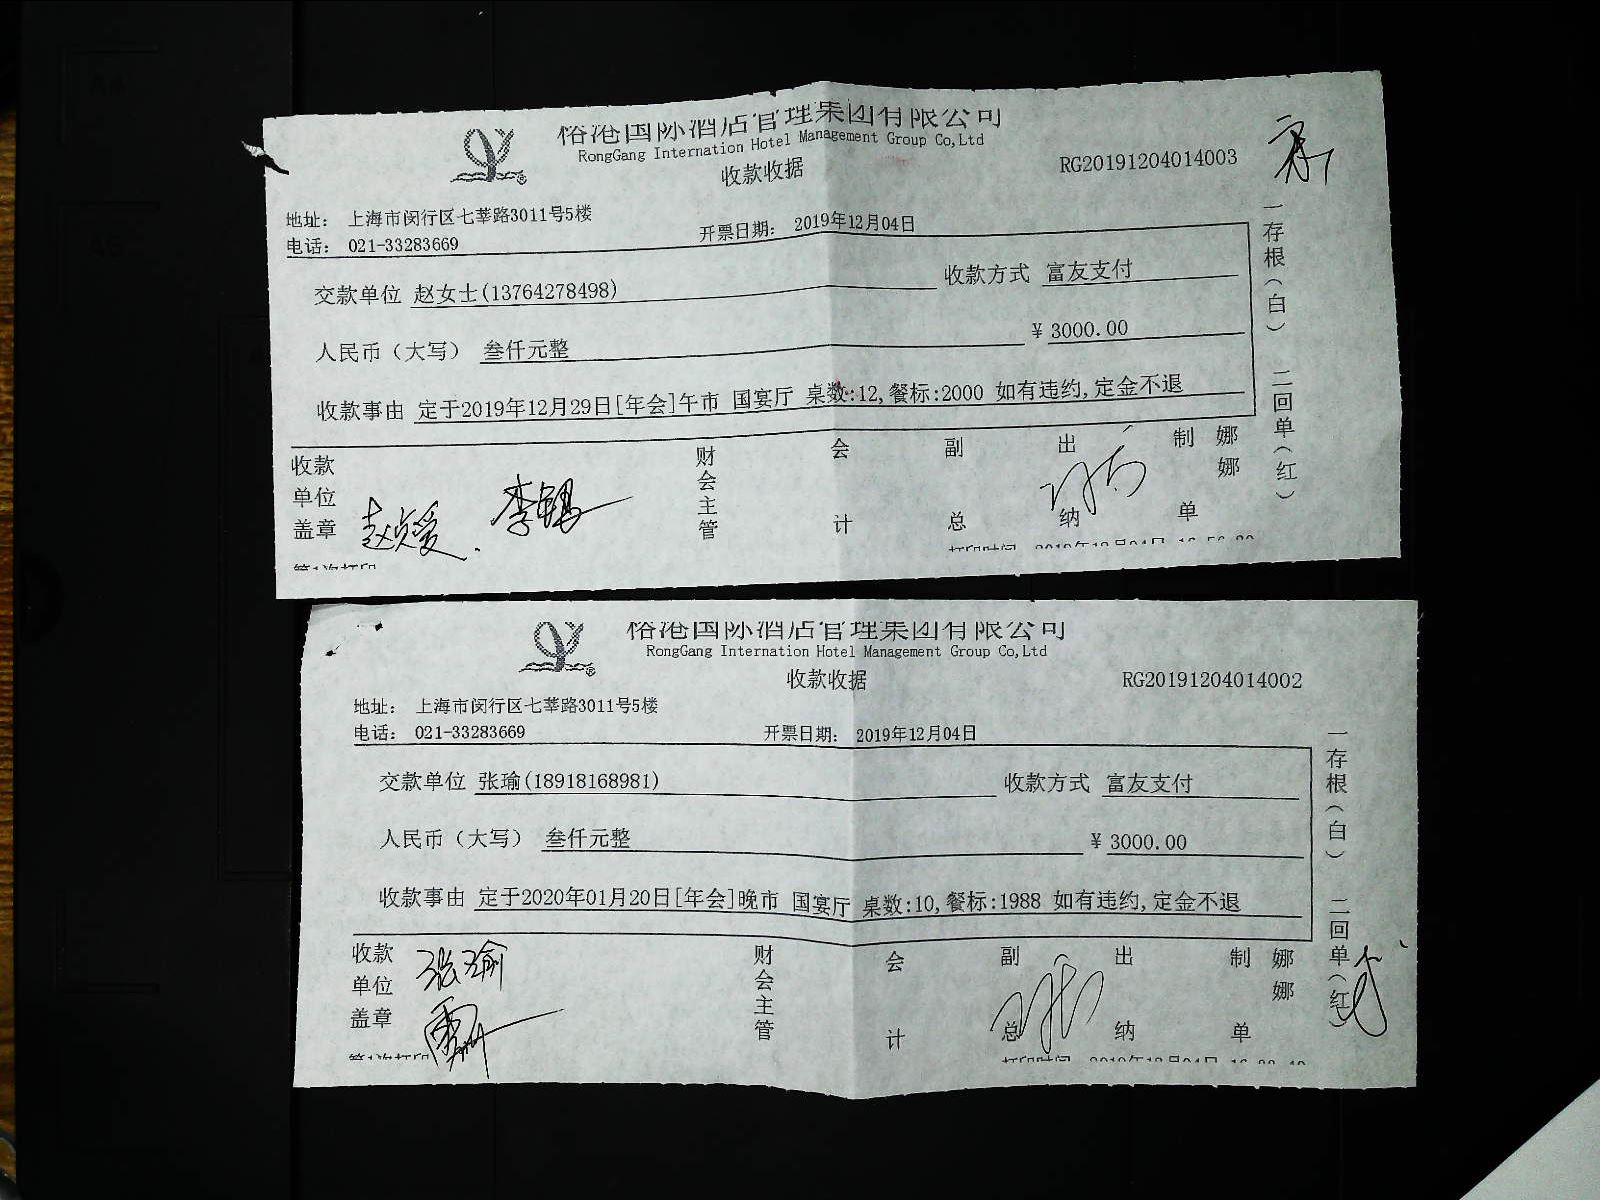 裕港国际酒店管理集团有限公司
RongGang Internation Hotel Management Group Co,Ltd
收款收据
RG20191204014003
地址： 上海市闵行区七莘路3011号5楼
电话： 021-33283669
开票日期： 2019年12月04日
交款单位 赵女士(13764278498)
收款方式 富友支付
人民币（大写） 叁仟元整
¥ 3000.00
收款事由 定于2019年12月29日[年会]午市 国宴厅 桌数:12,餐标:2000 如有违约,定金不退
一存根（白） 二回单（红）
收款单位盖章
财会主管
会计
副总
出纳
制单
娜娜
赵贞爱
第1次打印
打印时间 2019年12月04日
裕港国际酒店管理集团有限公司
RongGang Internation Hotel Management Group Co,Ltd
收款收据
RG20191204014002
地址： 上海市闵行区七莘路3011号5楼
电话： 021-33283669
开票日期： 2019年12月04日
交款单位 张瑜(18918168981)
收款方式 富友支付
人民币（大写） 叁仟元整
¥ 3000.00
收款事由 定于2020年01月20日[年会]晚市 国宴厅 桌数:10,餐标:1988 如有违约,定金不退
一存根（白） 二回单（红）
收款单位盖章
张瑜
财会主管
会计
副总
出纳
制单
娜娜
第1次打印
打印时间 2019年12月04日